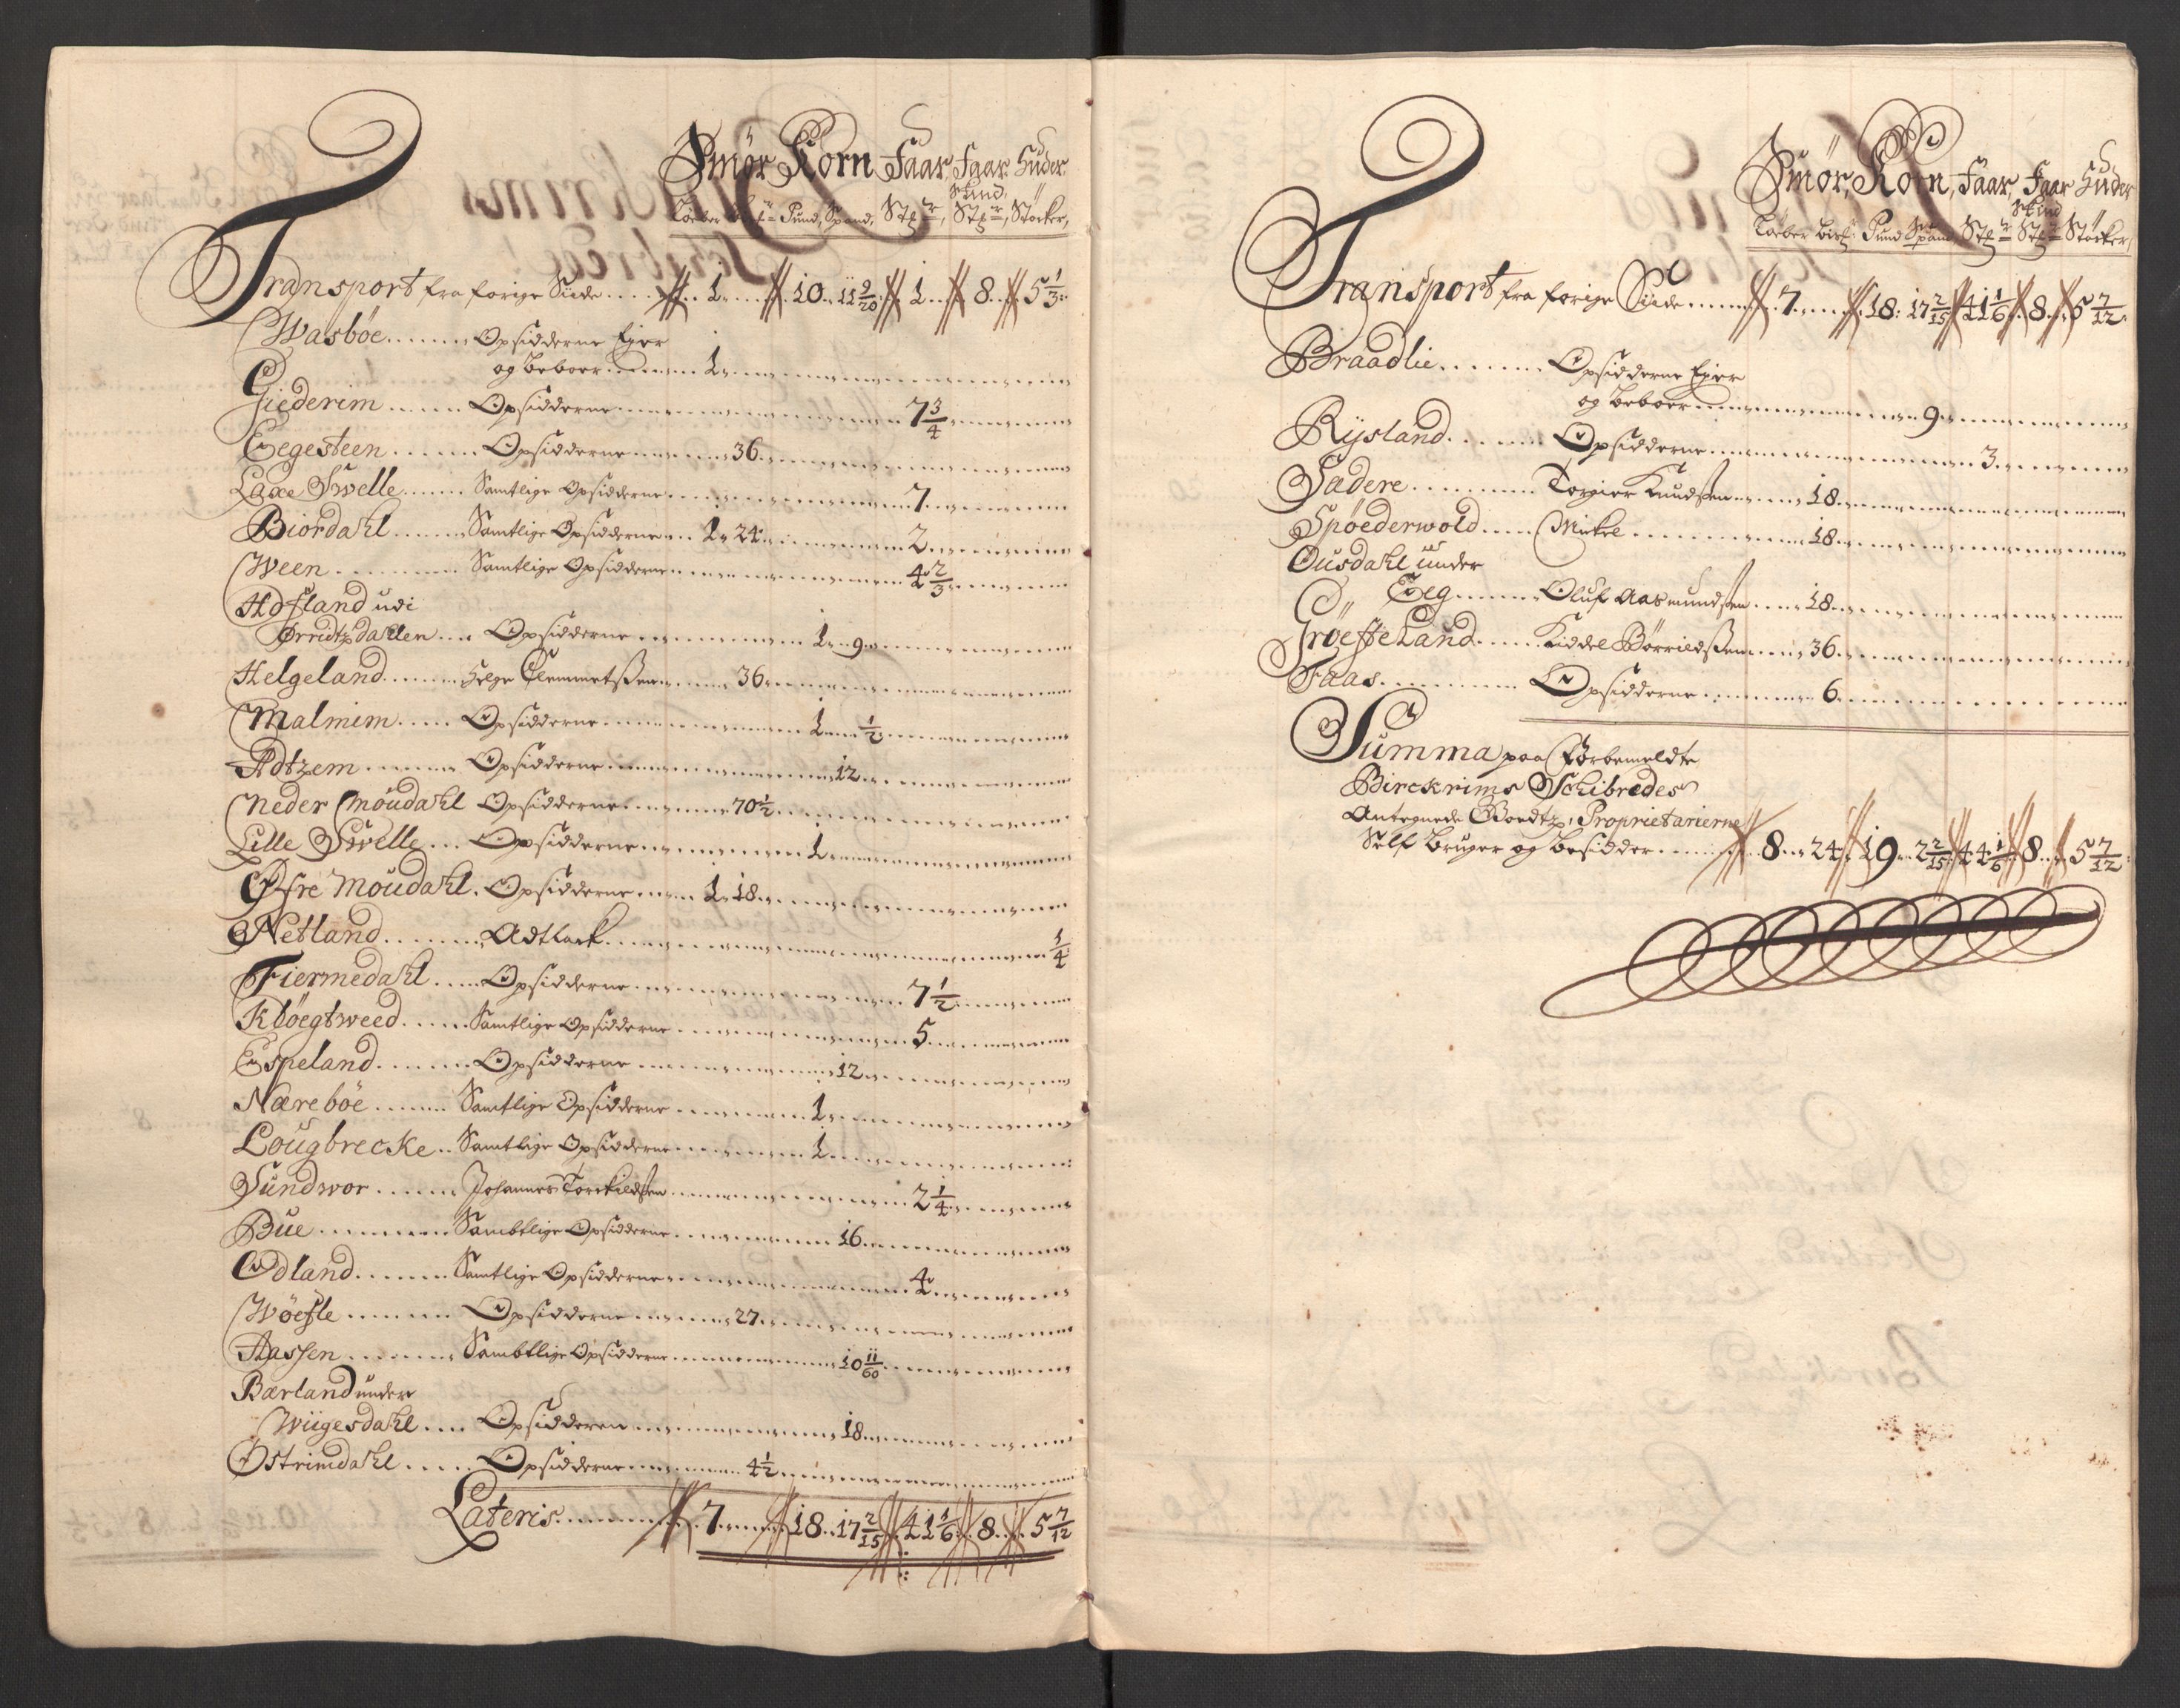 Smör Korn Faar Faar Huder
Skind
Löeber Bisf: Pund, Spand, Stch:r, Stch:r, Støcker,
Transport fra forige Siide .... 1 .... 10 .. 11 9/20 .. 1 .. 8 .. 5 1/3
Wasböe ....... Opsidderne Ejer
og beboer ....... 1
Giederim ...... Opsidderne ....... 7 3/4
Eegesteen ...... Opsidderne ....... 36
Laxe Swelle ...... Samtlige Opsidderne ....... 7
Biordahl ...... Samtlige Opsidderne .... 1 .. 24 ....... 2
Ween ....... Samtlige Opsidderne ....... 4 2/3
Hofland udi
Ørridtzdallen .... Opsidderne ....... 1 .. 9
Helgeland ...... Helge Clemmetssen ....... 36
Malmim ..... Opsidderne ....... 1 .... 1/2
Adtzem ...... Opsidderne ....... 12
Neder Möudahl Opsidderne ....... 70 1/2
Lille Swelle ... Opsidderne ....... 1
Øfre Möudahl . Opsidderne .... 1 .. 18
Netland ....... Adtlach ....... 1/4
Fiermedahl ..... Opsidderne ....... 7 1/2
Klöegtweed ...... Samtlige Opsidderne ....... 5
Espeland ....... Opsidderne ....... 12
Næreböe ...... Samtlige Opsidderne ....... 1
Lougbrecke .. Samtlige Opsidderne ....... 1
Sundwor ...... Johannes Torkieldssen ....... 2 1/4
Bue ....... Sambtlige Opsidderne ....... 16
Odland ....... Samtlige Opsidderne ....... 4
Wöefle ....... Opsidderne ....... 27
Aassen ....... Sambtlige Opsidderne ....... 10 11/60
Bærland under
Wiigesdahl .... Opsidderen ....... 18
Østrimdahl ..... Opsidderne ....... 4 1/2
Lateris ....... 7 .... 18 .. 17 2/15 .. 41 1/6 .. 8 .. 5 7/12
Smör, Korn, Faar, Faar Huder
Skind
Löeber Bisf: Pund Spand, Stch:r Stch:r Støcker,
Transport fra forige Siide .... 7 .... 18 : 17 2/15 .. 41 1/6 .. 8 .. 5 7/12
Braadlie ....... Opsidderne Ejer
og beboer ....... 9
Rysland ....... Opsidderne ....... 3
Sædere ....... Torgier Knudssen ....... 18
Spöederwold ..... Mickel ....... 18
Ousdahl under
Eeg ....... Oluf Aasmundssen ..... 18
Gröeffeland ..... Kiddel Börrieldssen ..... 36
Faas ....... Opsidderne ....... 6
Summa paa forbemeldte
Birckrims Schibredes
Antegnede Goedtz, Proprietarierne
Self bruger og besidder ....... 8 .. 24 .. 19 .. 2 2/15 .. 44 1/6 .. 8 .. 5 7/12